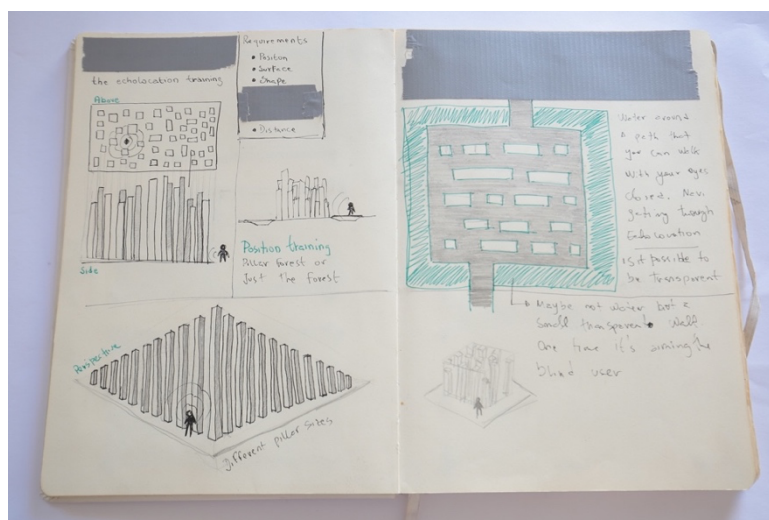 the echolocation training
Above
Side
Requirements
• Positon
• Surface
• Shape
• Distance
Position training
Pillar forest or
Just the Forest
Perspective
Different pillar sizes
Water around
a path that
you can walk
with your eyes
closed, Navi
gating through
Echolocation
is it possible to
be Transparent
Maybe not water but a
small transparent wall.
One time it's aiming the
blind user